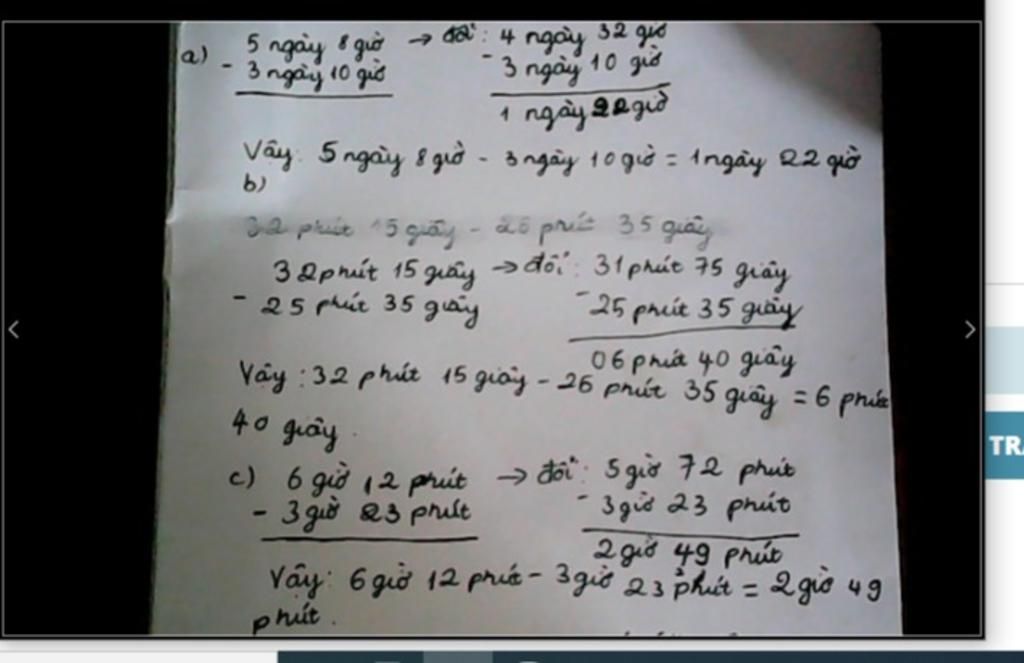 a) 5 ngày 8 giờ → đổi: 4 ngày 32 giờ
- 3 ngày 10 giờ - 3 ngày 10 giờ
1 ngày 22 giờ
Vậy: 5 ngày 8 giờ - 3 ngày 10 giờ = 1 ngày 22 giờ
b)
32 phút 15 giây - 26 phút 35 giây
32 phút 15 giây → đổi: 31 phút 75 giây
- 25 phút 35 giây - 25 phút 35 giây
06 phút 40 giây
Vậy: 32 phút 15 giây - 26 phút 35 giây = 6 phút
40 giây.
c) 6 giờ 12 phút → đổi: 5 giờ 72 phút
- 3 giờ 23 phút - 3 giờ 23 phút
2 giờ 49 phút
Vậy: 6 giờ 12 phút - 3 giờ 23 phút = 2 giờ 49
phút.